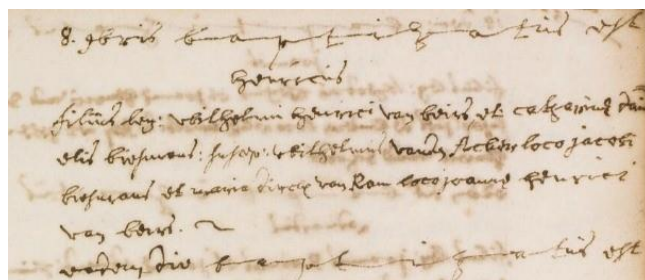 8. 9bris baaptizatus est
Henricus
filius leg: wilhelmi henrici van beirs et catharinæ dani
elis biesmans: suscep: wilhelmus vanden Acker loco jacobi
biesmans et maria dircx van Rom loco joannæ henrici
van beirs.
eodem die baptizatus est